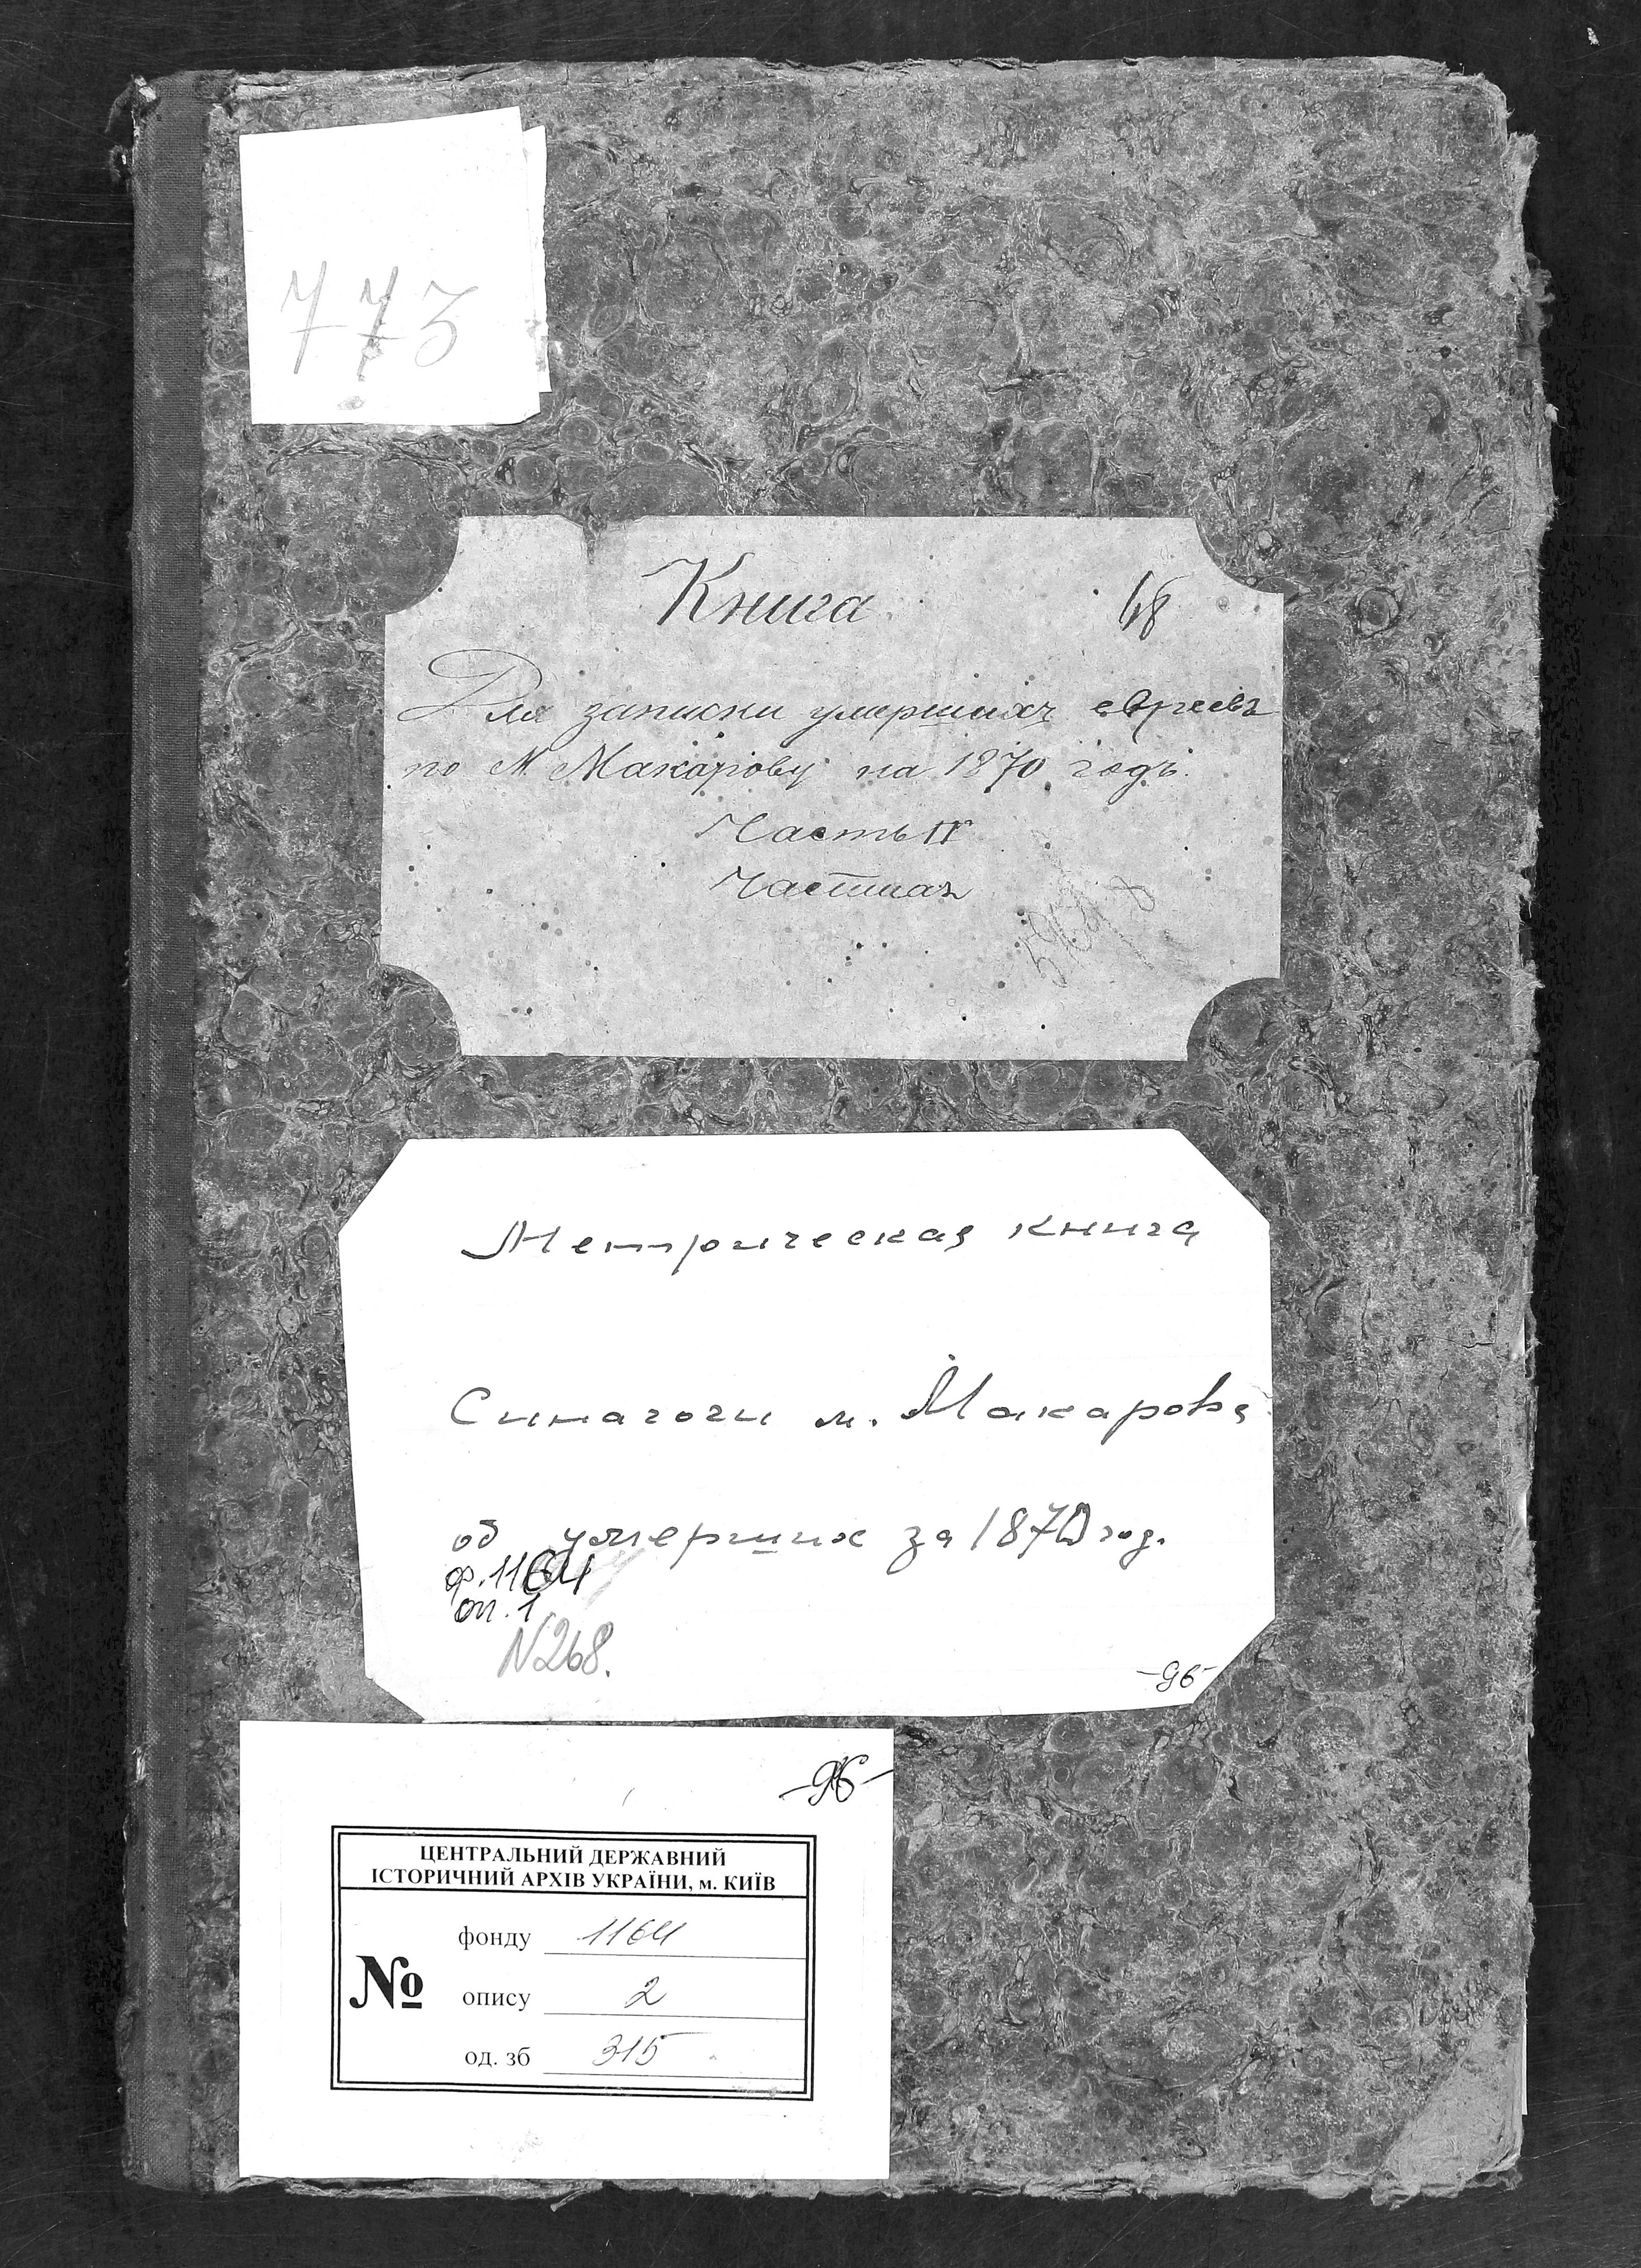 773
Книга
48
Для записки умершихъ евреевъ
по М. Макарову на 1870 годъ.
Часть IV
Метрическая книга
Синагоги м. Макарова
об умерших за 1870 год.
ф. 1164
оп. 1
N268.
-96-
-96-
ЦЕНТРАЛЬНИЙ ДЕРЖАВНИЙ
ІСТОРИЧНИЙ АРХІВ УКРАЇНИ, м. КИЇВ
№
фонду 1164
опису 2
од. зб 315